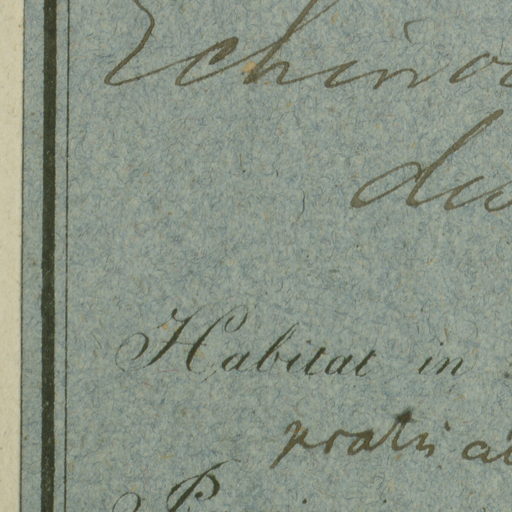 Echino
du
Habitat in
pratis al
P